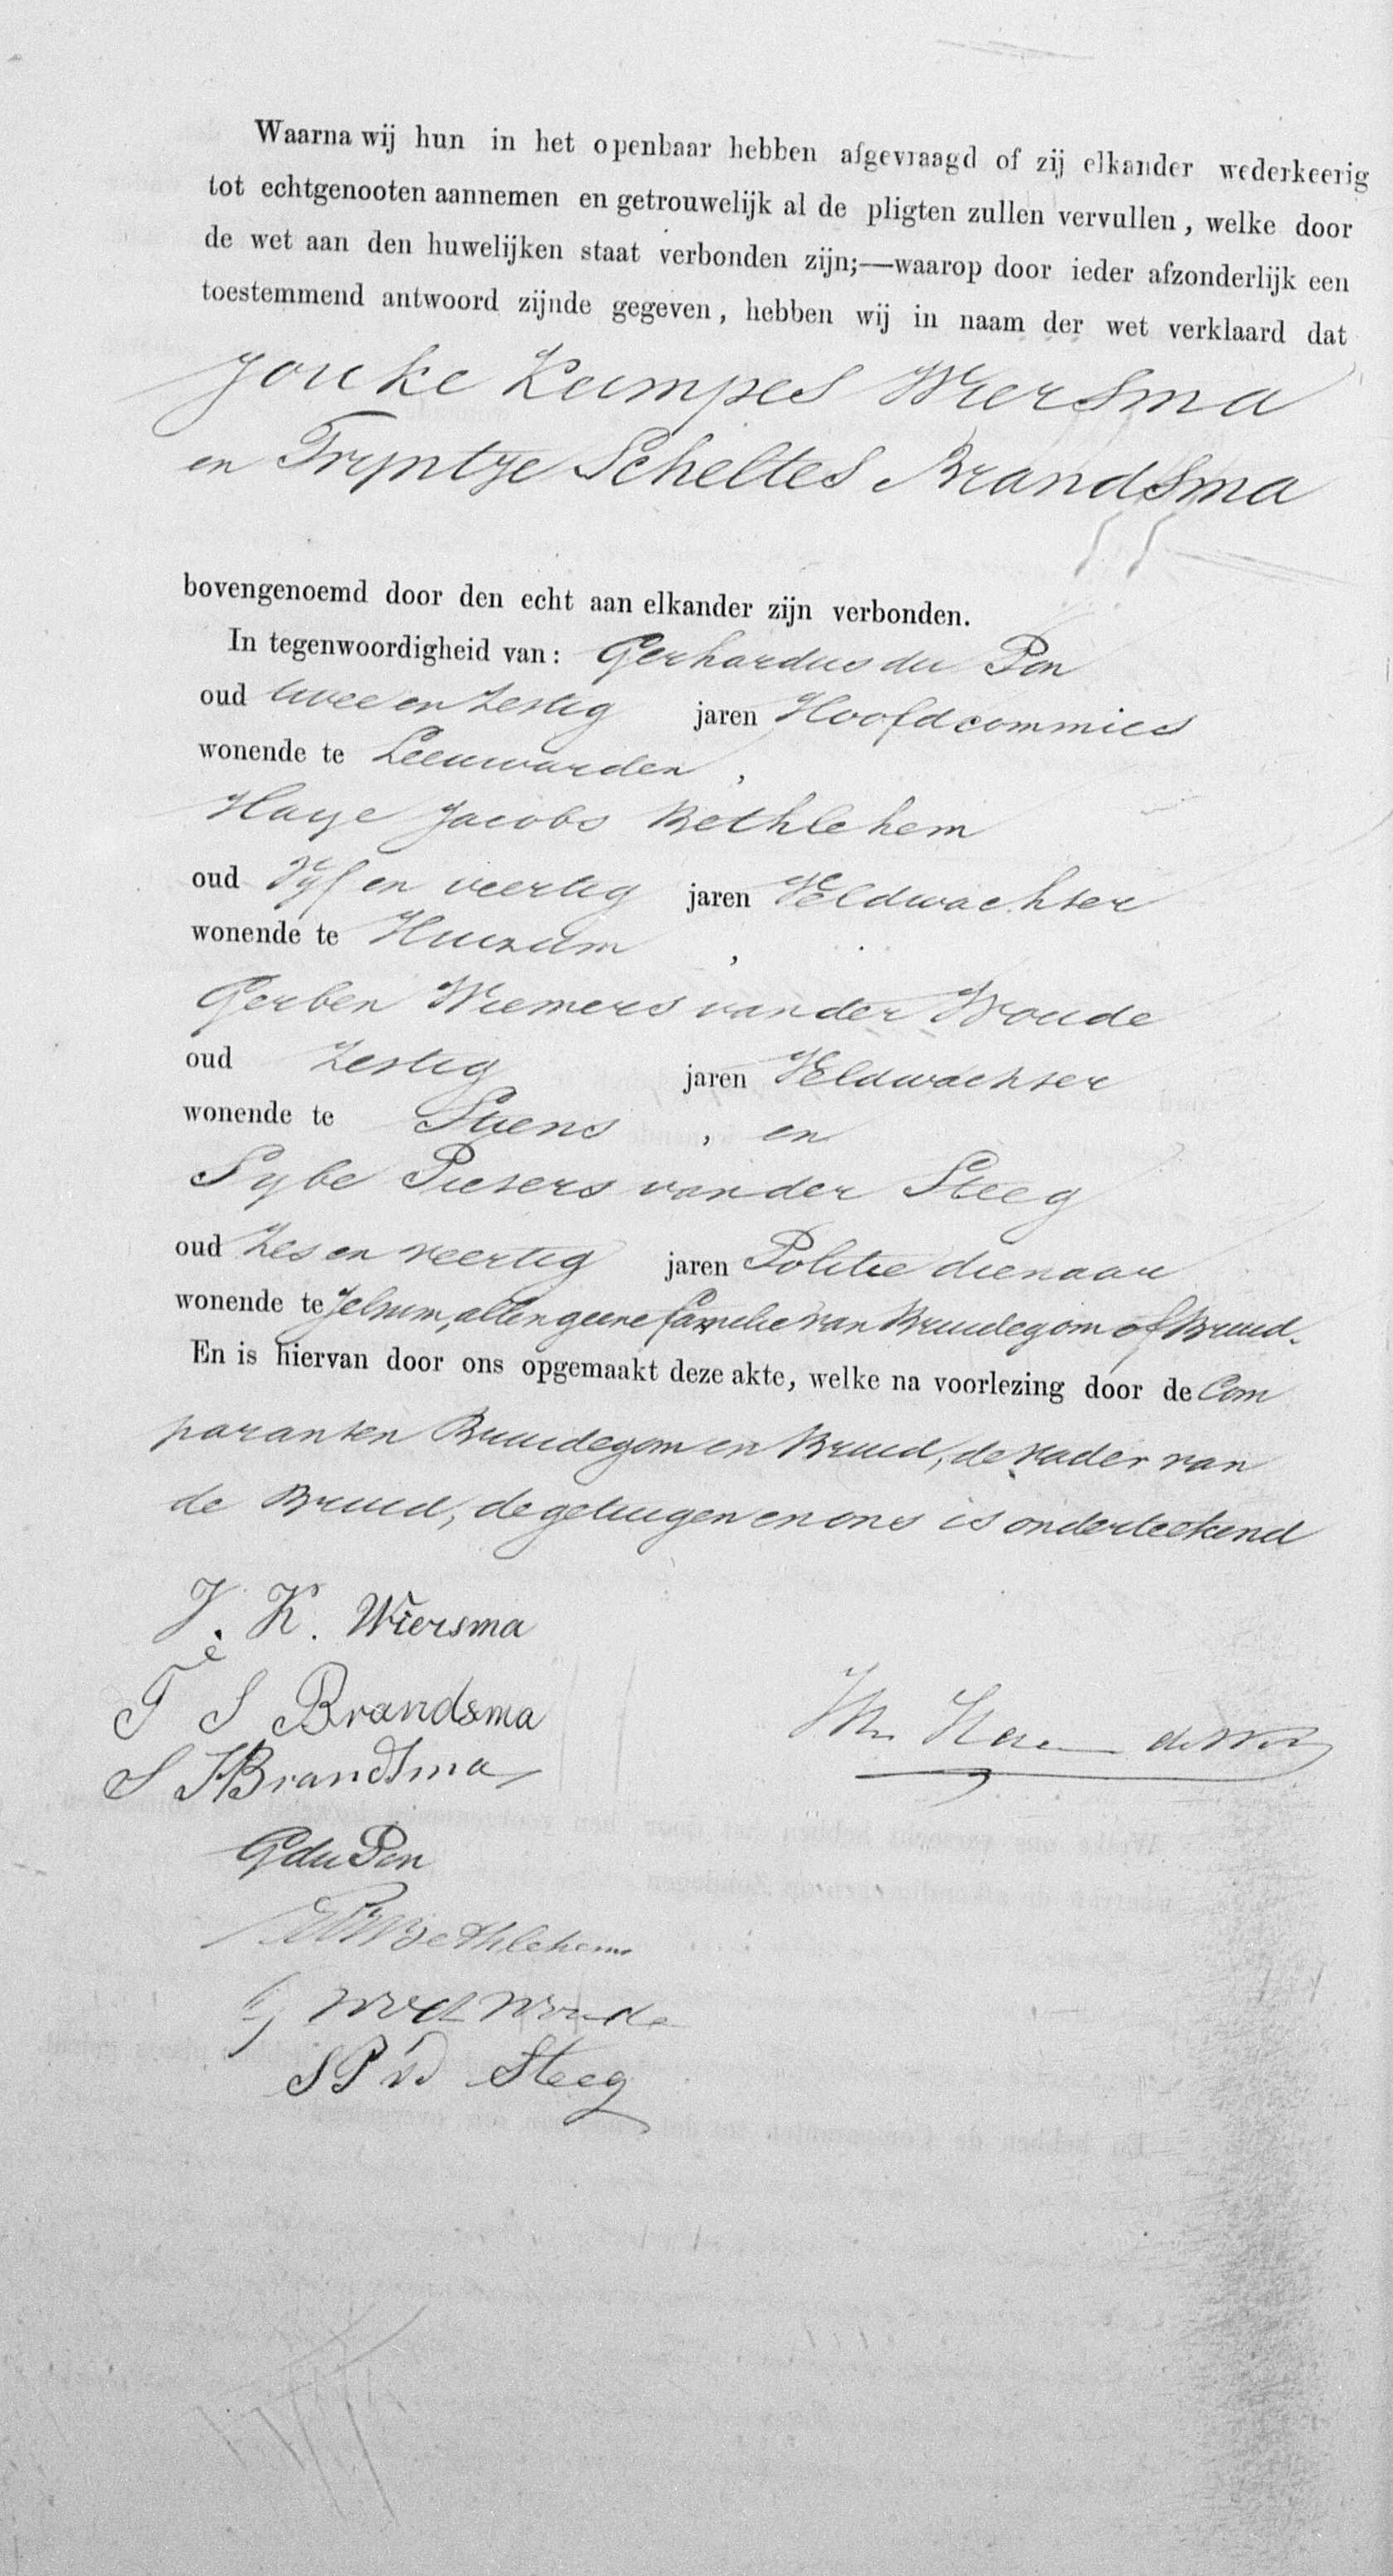 Waarna wij hun in het openbaar hebben afgevraagd of zij elkander wederkeerig
tot echtgenooten aannemen en getrouwelijk al de pligten zullen vervullen, welke door
de wet aan den huwelijken staat verbonden zijn;—waarop door ieder afzonderlijk een
toestemmend antwoord zijnde gegeven, hebben wij in naam der wet verklaard dat
Jouke Kempes Wiersma
en Tryntje Scheltes Brandsma
bovengenoemd door den echt aan elkander zijn verbonden.
In tegenwoordigheid van: Gerhardus du Pon
oud twee en zestig jaren Hoofdcommies
wonende te Leeuwarden,
Haye Jacobs Bethlehem
oud Vyf en veertig jaren Veldwachter
wonende te Huizum,
Gerben Wiemers van der Woude
oud Zestig jaren Veldwachter
wonende te Stiens, en
Sybe Pieters van der Steeg
oud Zes en veertig jaren Politie dienaar
wonende te Jelsum, allen geene familie van Bruidegom of Bruid.
En is hiervan door ons opgemaakt deze akte, welke na voorlezing door de Com
paranten Bruidegom en Bruid, de vader van
de Bruid, de getuigen en ons is onderteekend
J. K. Wiersma
T S Brandsma
S H Brandsma
G du Pon
Bethlehem
G W vd Woude
S P vd Steeg